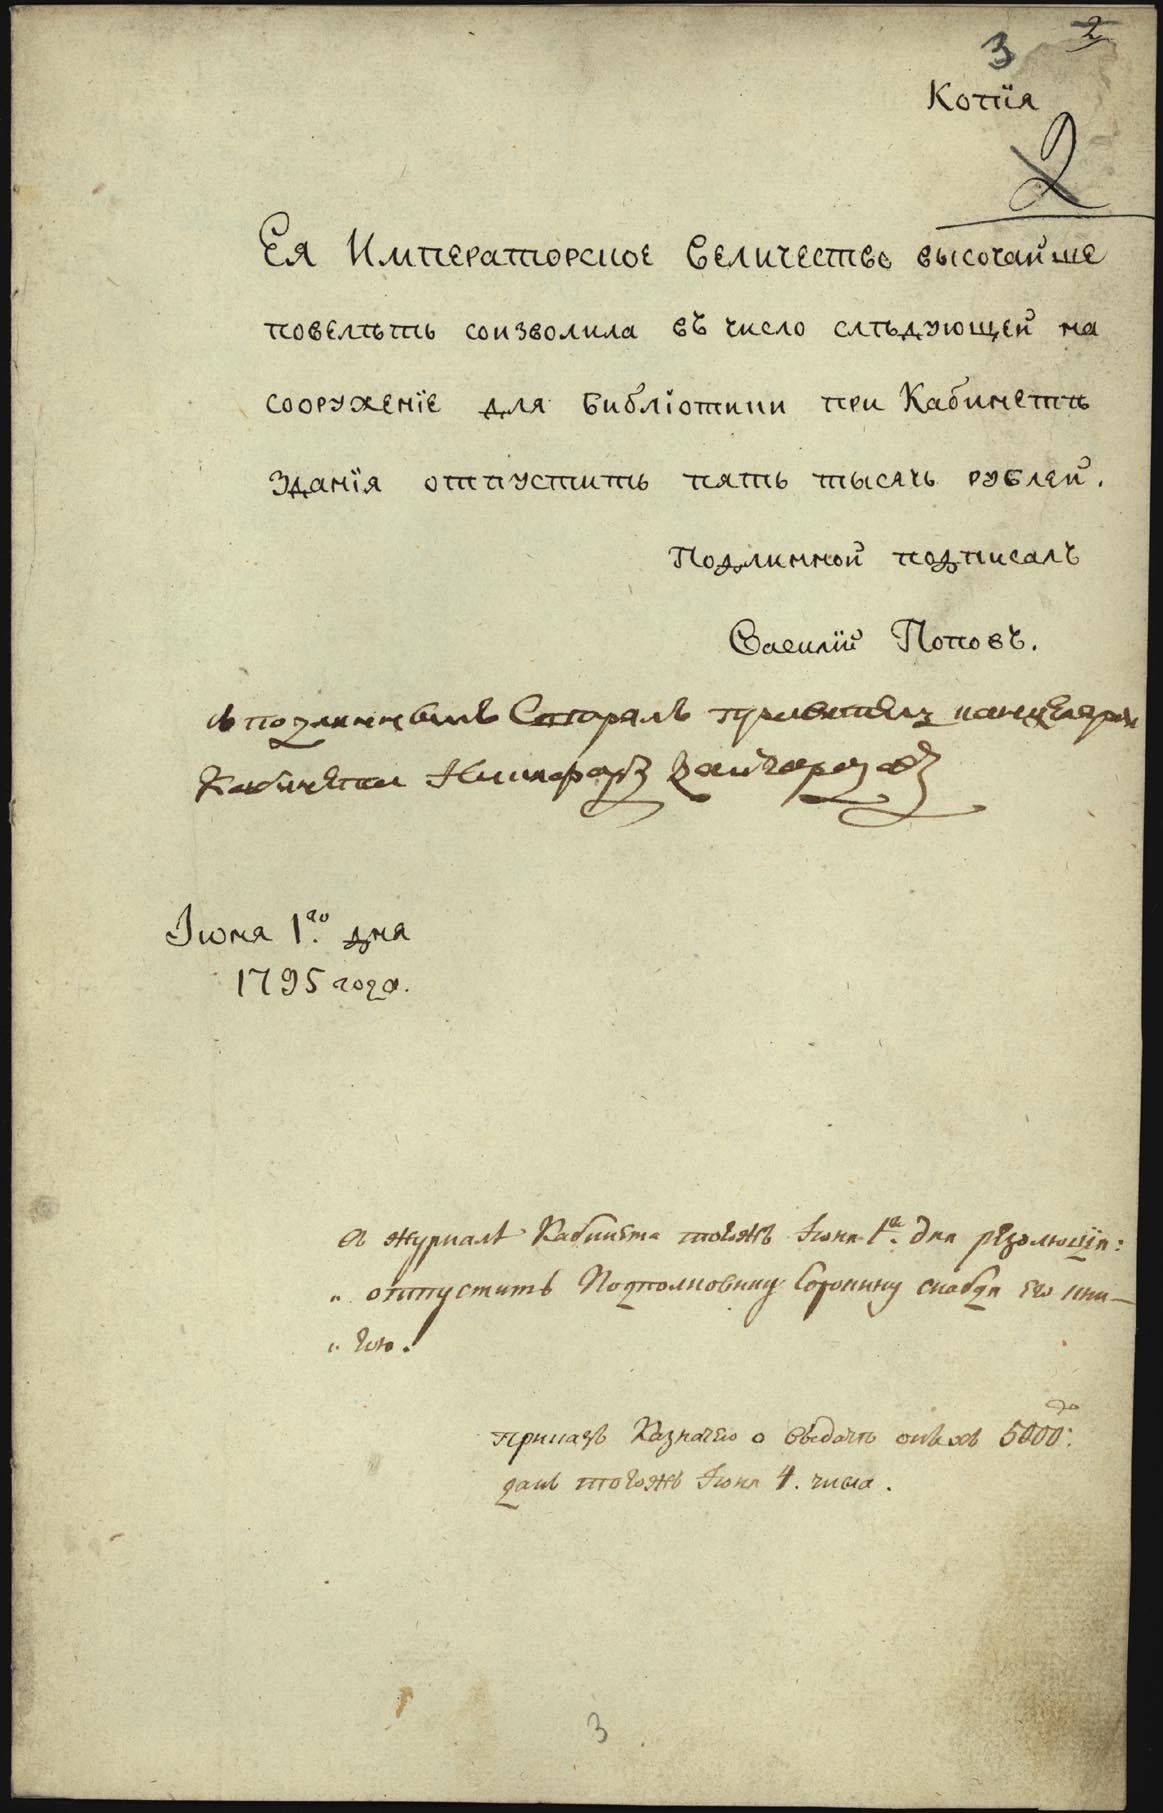 3 2
Копїя
2
Ея Императорское Величество высочайше
повелѣть соизволила въ число слѣдующей на
сооруженїе для библїотики при Кабинетѣ
зданїя отпустить пять тысячь рублей.
Подлинной подписалъ
Василїй Поповъ.
с подлиннымъ правитель канцелярїи
Кабинета
Іюня 1го. дня
1795 года.
В журналѣ Кабинета тогожъ Іюня 1го. дня резолюцїя:
„ отпустить Подполковнику Сорокину снабдя его кни-
„ гою.
приказъ Казначею о выдачѣ оныхъ 5000.
данъ тогожъ Іюня 4. числа.
3